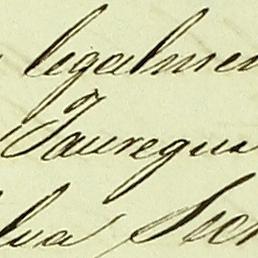 legalmen
Jauregui
lua Secr